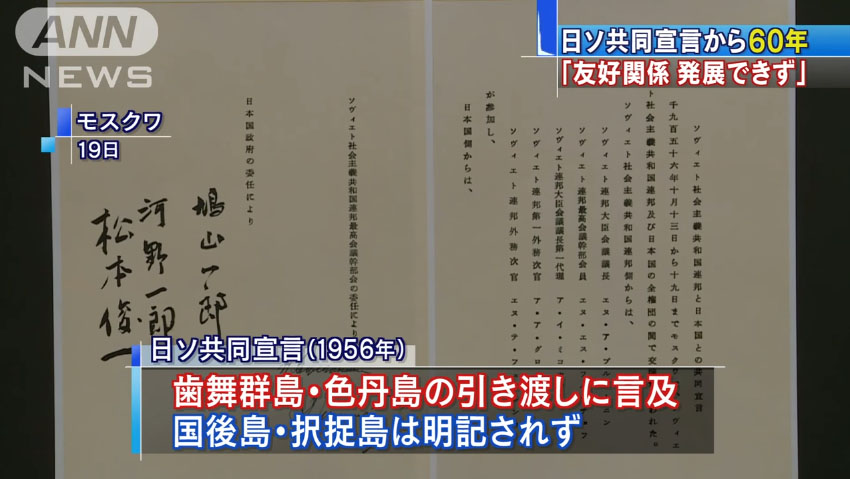 ANN
NEWS
日ソ共同宣言から60年
「友好関係 発展できず」
モスクワ
19日
ソヴィエト社会主義共和国連邦と日本国との共同宣言
千九百五十六年十月十三日から十九日までモスクワで、ソヴィエ
ト社会主義共和国連邦及び日本国の全権団の間で交渉が行われた。
ト社会主義共和国連邦側からは、
ソヴィエト連邦大臣会議議長 エヌ・ア・ブルガーニン
ソヴィエト連邦最高会議幹部会員 エヌ・エス・フ
ソヴィエト連邦大臣会議議長第一代理 ア・イ・ミコ
ソヴィエト連邦第一外務次官 ア・ア・グロ
ソヴィエト連邦外務次官 エヌ・テ・フ
が参加し、
日本国側からは、
ソヴィエト社会主義共和国連邦最高会議幹部会の委任により
日本国政府の委任により
鳩山一郎
河野一郎
松本俊一
日ソ共同宣言(1956年)
歯舞群島・色丹島の引き渡しに言及
国後島・択捉島は明記されず